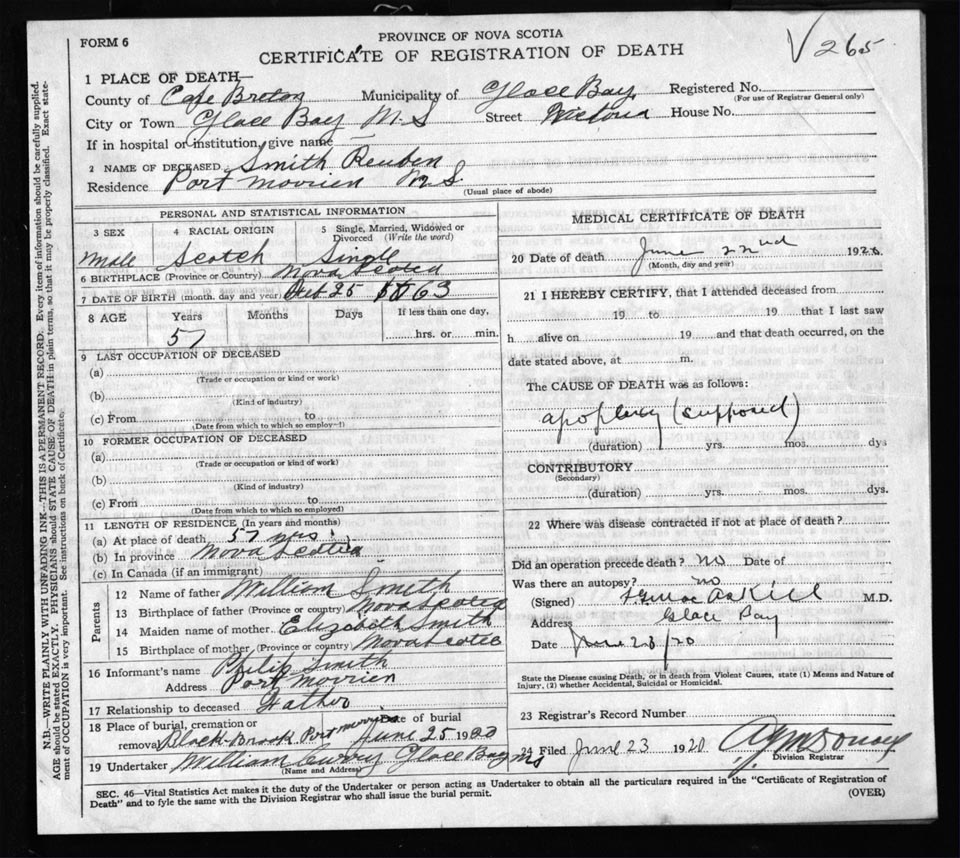 FORM 6
PROVINCE OF NOVA SCOTIA
CERTIFICATE OF REGISTRATION OF DEATH
√ 265
1 PLACE OF DEATH—
County of Cape Breton Municipality of Glace Bay Registered No.
(For use of Registrar General only)
City or Town Glace Bay N S Street Victoria House No.
If in hospital or institution, give name
2 NAME OF DECEASED Smith Reuben
Residence Port Morrien N.S.
(Usual place of abode)
PERSONAL AND STATISTICAL INFORMATION
3 SEX 4 RACIAL ORIGIN 5 Single, Married, Widowed or Divorced (Write the word)
Male Scotch Single
6 BIRTHPLACE (Province or Country) Nova Scotia
7 DATE OF BIRTH (month, day and year) 25 1863
8 AGE Years Months Days If less than one day,
57 hrs. or min.
9 LAST OCCUPATION OF DECEASED
(a)
(Trade or occupation or kind or work)
(b)
(Kind of industry)
(c) From to
(Date from which to so employed)
10 FORMER OCCUPATION OF DECEASED
(a)
(Trade or occupation or kind of work)
(b)
(Kind of industry)
(c) From to
(Date from which to so employed)
11 LENGTH OF RESIDENCE (In years and months)
(a) At place of death 57 yrs
(b) In province Nova Scotia
(c) In Canada (if an immigrant)
Parents
12 Name of father William Smith
13 Birthplace of father (Province or country) Nova Scotia
14 Maiden name of mother Elizabeth Smith
15 Birthplace of mother (Province or country) Nova Scotia
16 Informant's name Philip Smith
Address Port Morrien
17 Relationship to deceased Father
18 Place of burial, cremation or removal Black-Brook Port Morrien Date of burial June 25 1920
19 Undertaker William Curry Glace Bay NS
(Name and Address)
MEDICAL CERTIFICATE OF DEATH
20 Date of death June 22nd 1920
(Month, day and year)
21 I HEREBY CERTIFY, that I attended deceased from
19 to 19 that I last saw
h alive on 19 and that death occurred, on the
date stated above, at m.
The CAUSE OF DEATH was as follows:
apoplexy (supposed)
(duration) yrs. mos. dys
CONTRIBUTORY
(Secondary)
(duration) yrs. mos. dys.
22 Where was disease contracted if not at place of death?
Did an operation precede death? no Date of
Was there an autopsy? no
(Signed) MacAskill M.D.
Address Glace Bay
Date June 23/20
State the Disease causing Death, or in death from Violent Causes, state (1) Means and Nature of
Injury, (2) whether Accidental, Suicidal or Homicidal.
23 Registrar's Record Number
24 Filed June 23 1920
Division Registrar
SEC. 46—Vital Statistics Act makes it the duty of the Undertaker or person acting as Undertaker to obtain all the particulars required in the "Certificate of Registration of
Death" and to fyle the same with the Division Registrar who shall issue the burial permit.
(OVER)
N.B.—WRITE PLAINLY WITH UNFADING INK—THIS IS A PERMANENT RECORD. Every item of information should be carefully supplied.
AGE should be stated EXACTLY. PHYSICIANS should STATE CAUSE OF DEATH in plain terms, so that it may be properly classified. Exact state-
ment of OCCUPATION is very important. See instructions on back of Certificate.